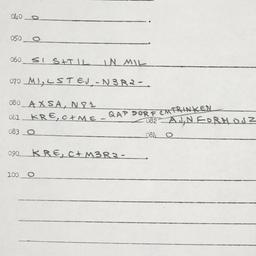 040 O
050 O
060 SI S+TIL IN MIL
070 MI,LSTEJ,-N3R2-.
080 AXSA, N91
081 KRE,C+ME-QAPDORFCMTRINKEN
082 AJ,NFORMOJZ
083 O
084 O
090 KRE,C+M3R2-
100 O